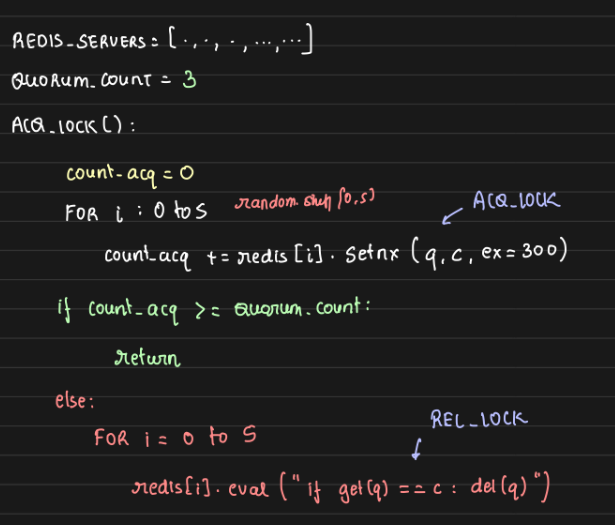 REDIS_SERVERS = [ ·, ·, ·, ..., ... ]
QUORUM_COUNT = 3
ACQ_LOCK():
count_acq = 0
FOR i : 0 to 5 random [0,5)
ACQ_LOCK
count_acq += redis[i].setnx (q, c, ex=300)
if count_acq >= quorum_count:
return
else:
FOR i = 0 to 5
REL_LOCK
redis[i].eval ("if get(q) == c : del(q)")